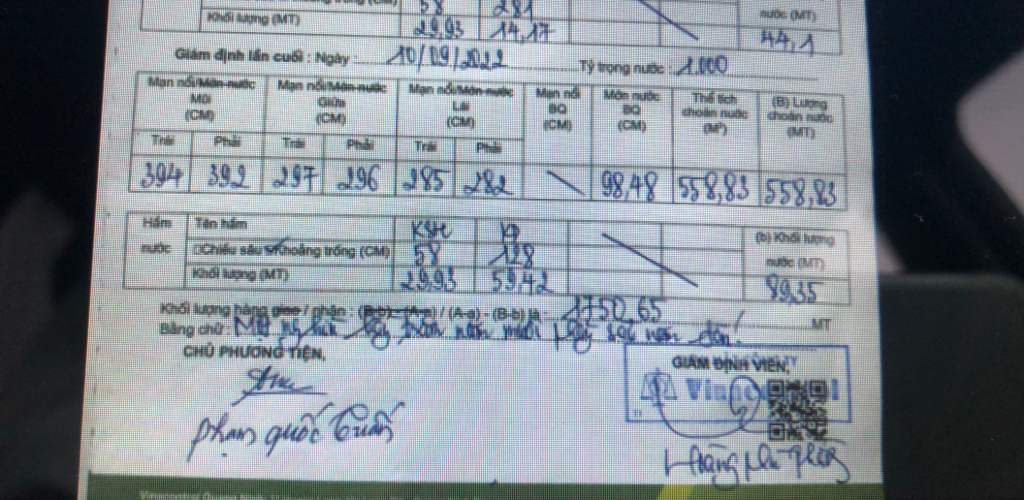 58 281
Khối lượng (MT) 29,93 14,17 nước (MT)
44,1
Giám định lần cuối : Ngày : 10/09/2022 Tỷ trọng nước : 1.000
Mạn nổi/Mớn nước Mũi (CM) Mạn nổi/Mớn nước Giữa (CM) Mạn nổi/Mớn nước Lái (CM) Mạn nổi BQ (CM) Mớn nước BQ (CM) Thể tích choán nước (M³) (B) Lượng choán nước (MT)
Trái Phải Trái Phải Trái Phải
394 392 297 296 285 282 98,48 558,83 558,83
Hầm nước Tên hầm (b) Khối lượng nước (MT)
Chiều sâu/Khoảng trống (CM) 58 128
Khối lượng (MT) 29,93 59,42 89,35
Khối lượng hàng giao / nhận : (B-b) - (A-a) / (A-a) - (B-b) là : 1750,65 MT
Bằng chữ : Một nghìn bảy trăm năm mươi phẩy sáu năm tấn
CHỦ PHƯƠNG TIỆN, GIÁM ĐỊNH VIÊN,
Phạm Quốc Tuấn